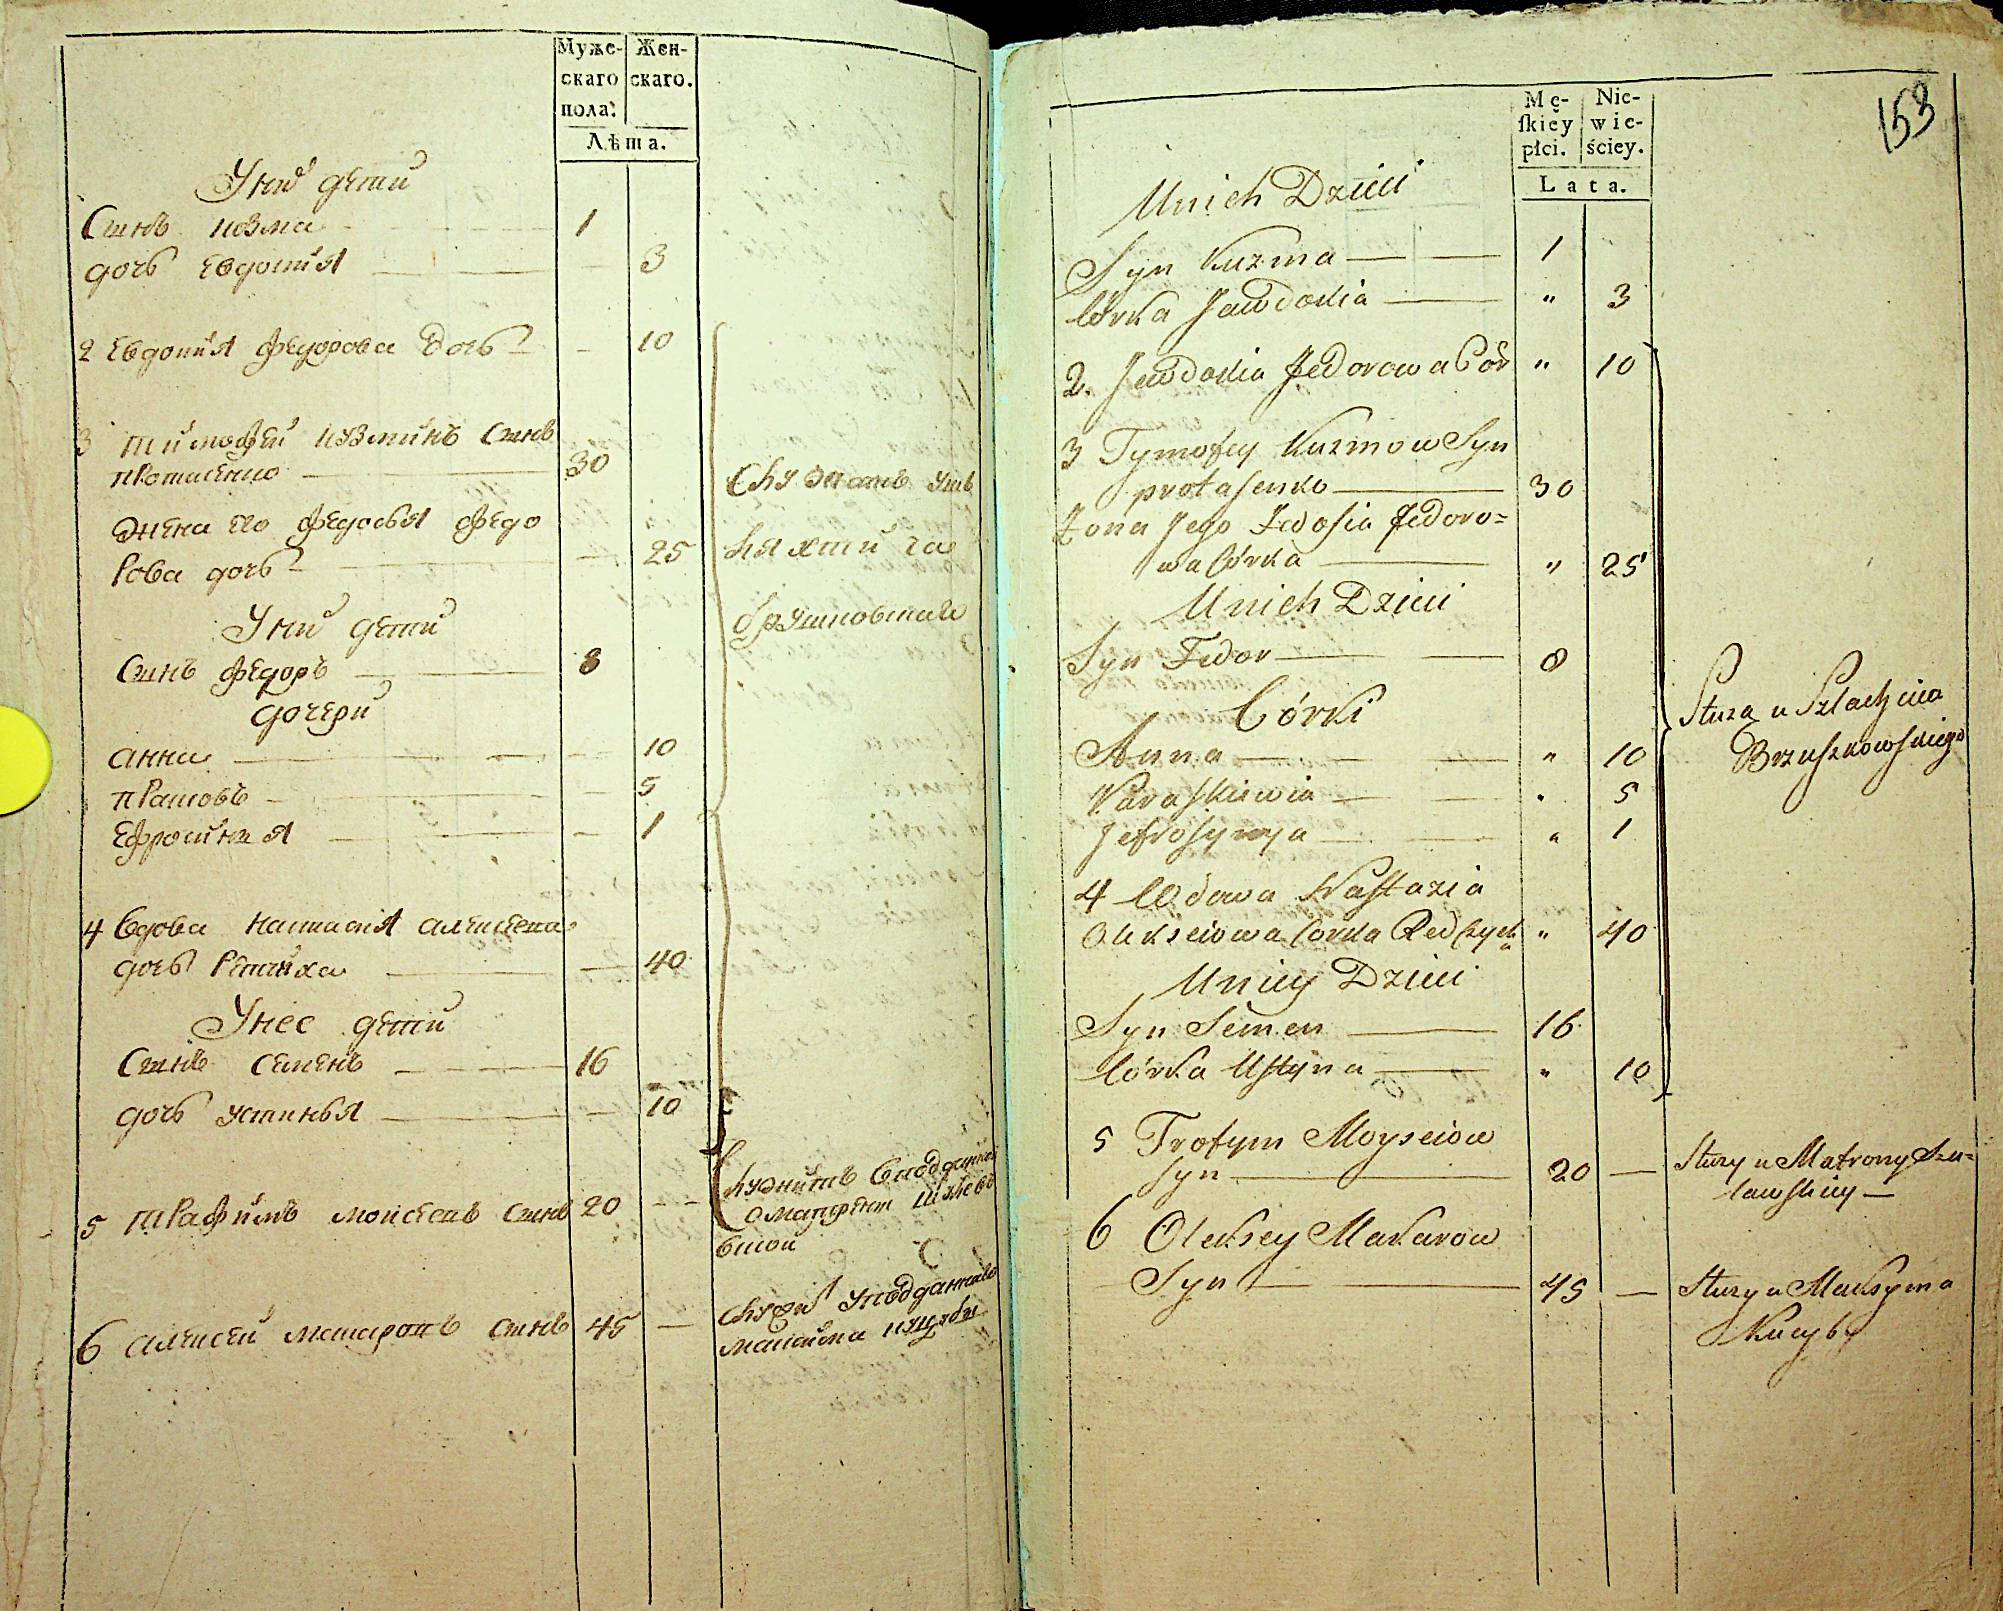 Муже-
скаго
пола.
Жен-
скаго.
Лѣта.
У них дети
Сынъ Козма 1
дочь Евдокия 3
2 Евдокия Федорова дочь 10
3 Тимофей Кузминъ Сынъ
Протасенко 30
Жена его Федосья Федо
рова дочь 25
У них дети
Сынъ Федоръ 8
дочери
Анна 10
Прасковь 5
Ефросинья 1
4 Вдова Настасия Алексеева
дочь 40
У нее дети
Сынъ Семенъ 16
дочь Устинья 10
5 Трафимъ Моисеевъ Сынъ 20
6 Алексей Макаровъ Сынъ 45
Служатъ у шъ
ляхтича
Брушковскаго
Служитъ
Служит у подданнаго
Максима Куцубы
153
Mę-
ſkiey
płci.
Nie-
wie-
ściey.
Lata.
U nich Dzieci
Syn Kuzma 1
Córka Jawdokia " 3
2. Jawdokia Fedorowa Cór " 10
3 Tymofey Kuzmow Syn
protasenko 30
Żona Jego Fedosia Fedoro=
wa Córka " 25
U nich Dzieci
Syn Fedor 8
Córki
Anna " 10
Paraskiewia " 5
Jefrosynya " 1
4 Wdowa Nastazia
Olekseiowa Córka " 40
U niey Dzieci
Syn Semen 16
Córka Ustyna " 10
5 Trofym Moyseiow
Syn 20
6 Oleksey Makarow
Syn 45
Służą u Szlachcica
Bruszkowskiego
Służy u Matrony Szu=
lawskiey
Służy u Maksyma
Kucyby